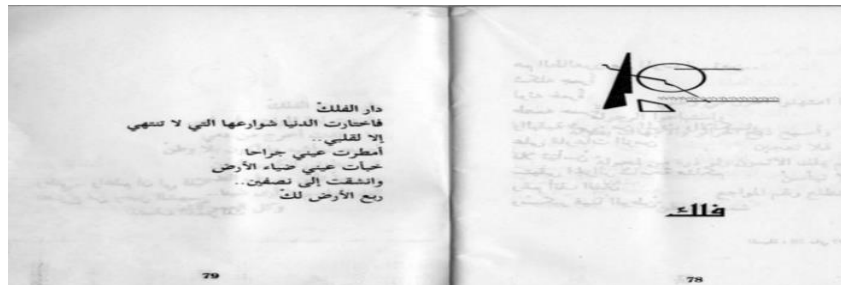 فلك
78
دار الفلكْ
فاختارت الدنيا شوارعها التي لا تنتهي
إلا لقلبي..
أمطرت عيني جراحا
خبأت عيني ضياء الأرض
وانشقت إلى نصفين..
ربع الأرض لكْ
79